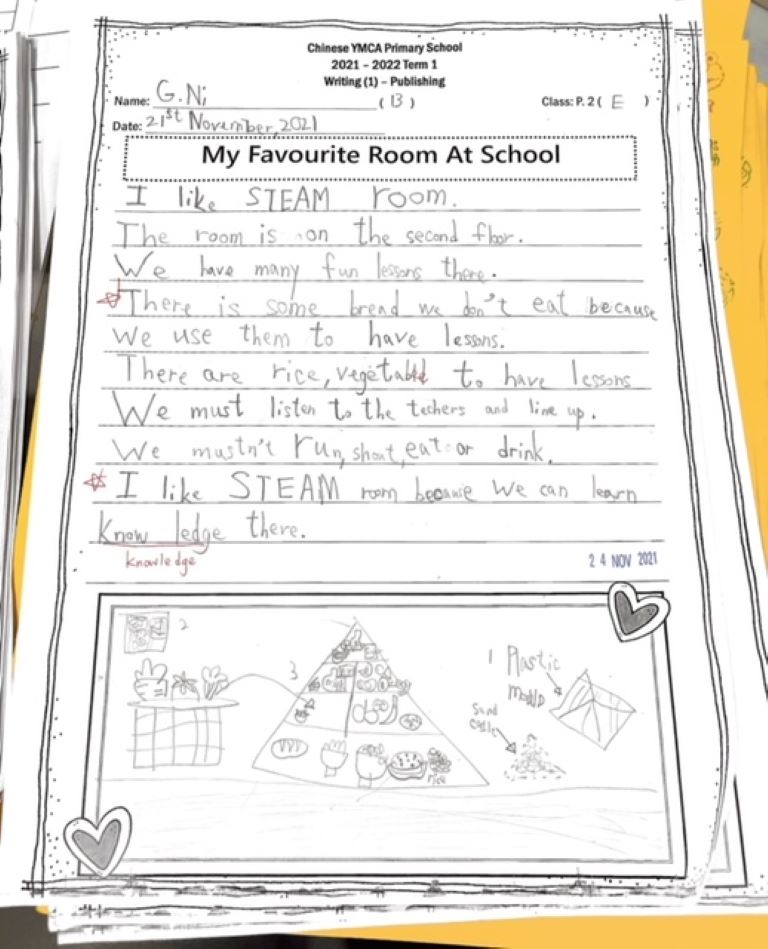 Chinese YMCA Primary School
2021 – 2022 Term 1
Writing (1) – Publishing
Name: G.Ni ( 13 ) Class: P. 2 ( E )
Date: 21st November, 2021
My Favourite Room At School
I like STEAM room.
The room is on the second floor.
We have many fun lessons there.
There is some bread we don't eat because
we use them to have lessons.
There are rice, vegetable to have lessons
We must listen to the techers and line up.
We mustn't run, shout, eat or drink.
I like STEAM room because we can learn
know ledge there.
knowledge
24 NOV 2021
2
3
1 Plastic
mould
Sand
castle
rice